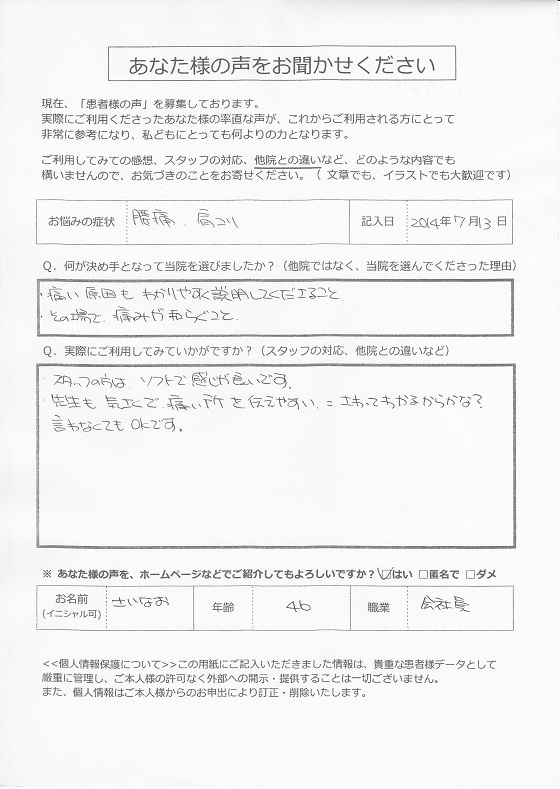 あなた様の声をお聞かせください
現在、「患者様の声」を募集しております。
実際にご利用くださったあなた様の率直な声が、これからご利用される方にとって
非常に参考になり、私どもにとっても何よりの力となります。
ご利用してみての感想、スタッフの対応、他院との違いなど、どのような内容でも
構いませんので、お気づきのことをお寄せください。（ 文章でも、イラストでも大歓迎です）
お悩みの症状 腰痛、肩コリ 記入日 2014年7月13日
Q．何が決め手となって当院を選びましたか？（他院ではなく、当院を選んでくださった理由）
・痛い原因もわかりやすく説明してくださること
・その場で、痛みが和らぐこと
Q．実際にご利用してみていかがですか？（スタッフの対応、他院との違いなど）
・スタッフの方は、ソフトで感じが良いです。
・先生も気さくで、痛い所を伝えやすい。＝さわってわかるからかな？
言わなくてもOKです。
※ あなた様の声を、ホームページなどでご紹介してもよろしいですか？ ☑はい □匿名で □ダメ
お名前 (イニシャル可) さいなお 年齢 46 職業 会社員
<<個人情報保護について>>この用紙にご記入いただきました情報は、貴重な患者様データとして
厳重に管理し、ご本人様の許可なく外部への開示・提供することは一切ございません。
また、個人情報はご本人様からのお申出により訂正・削除いたします。